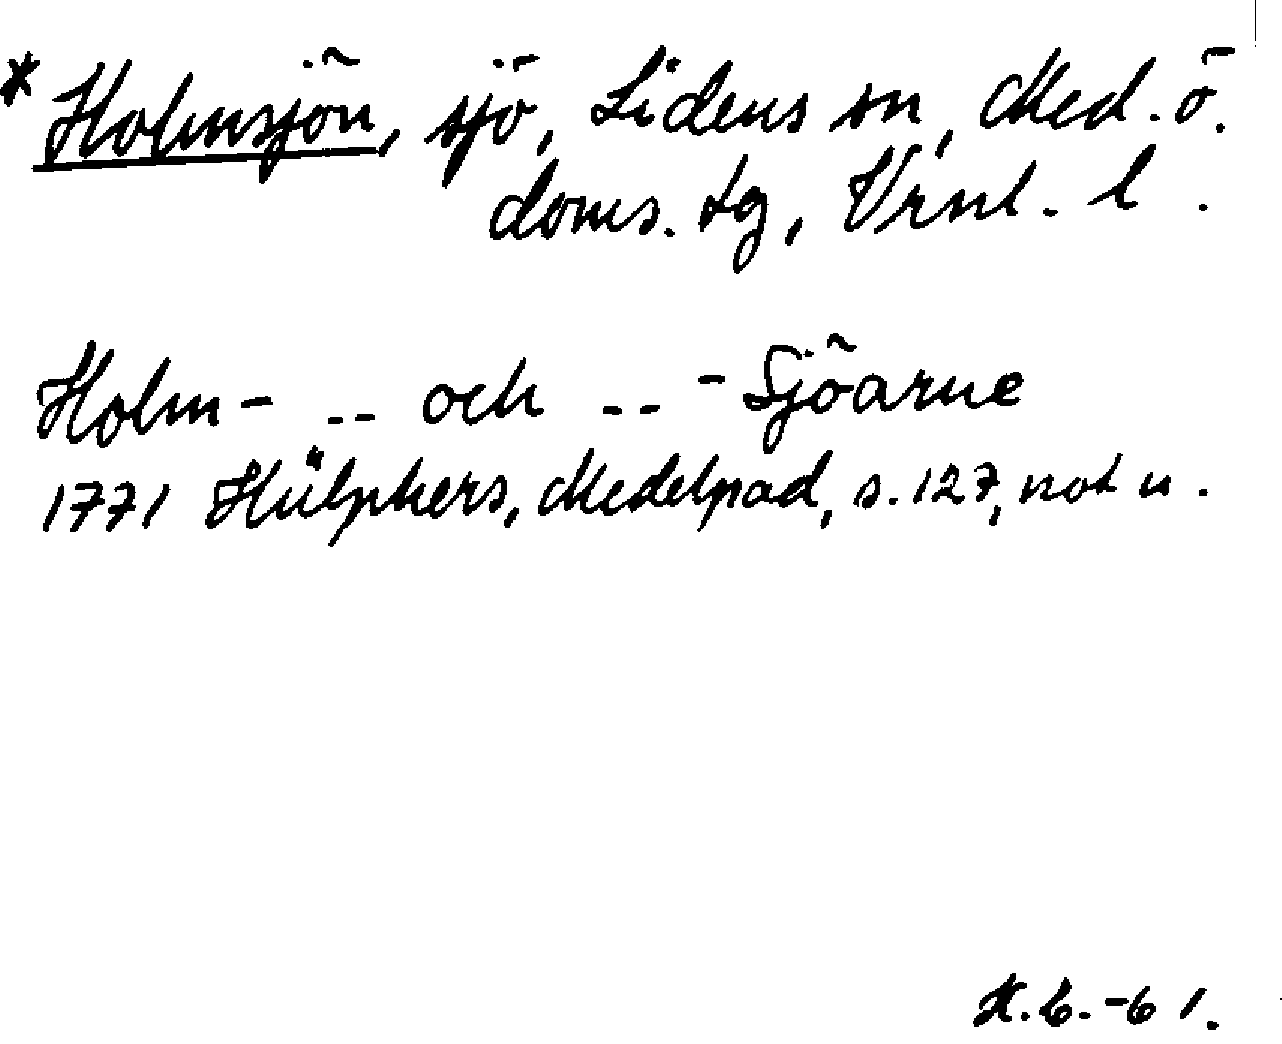 * Holmsjön, sjö, Lidens sn, Med. ö.
doms. tg, Vrnl. l.
Holm- -- och -- -Sjöarne
1771 Hülphers, Medelpad, s. 127, not u.
K.L.-61.